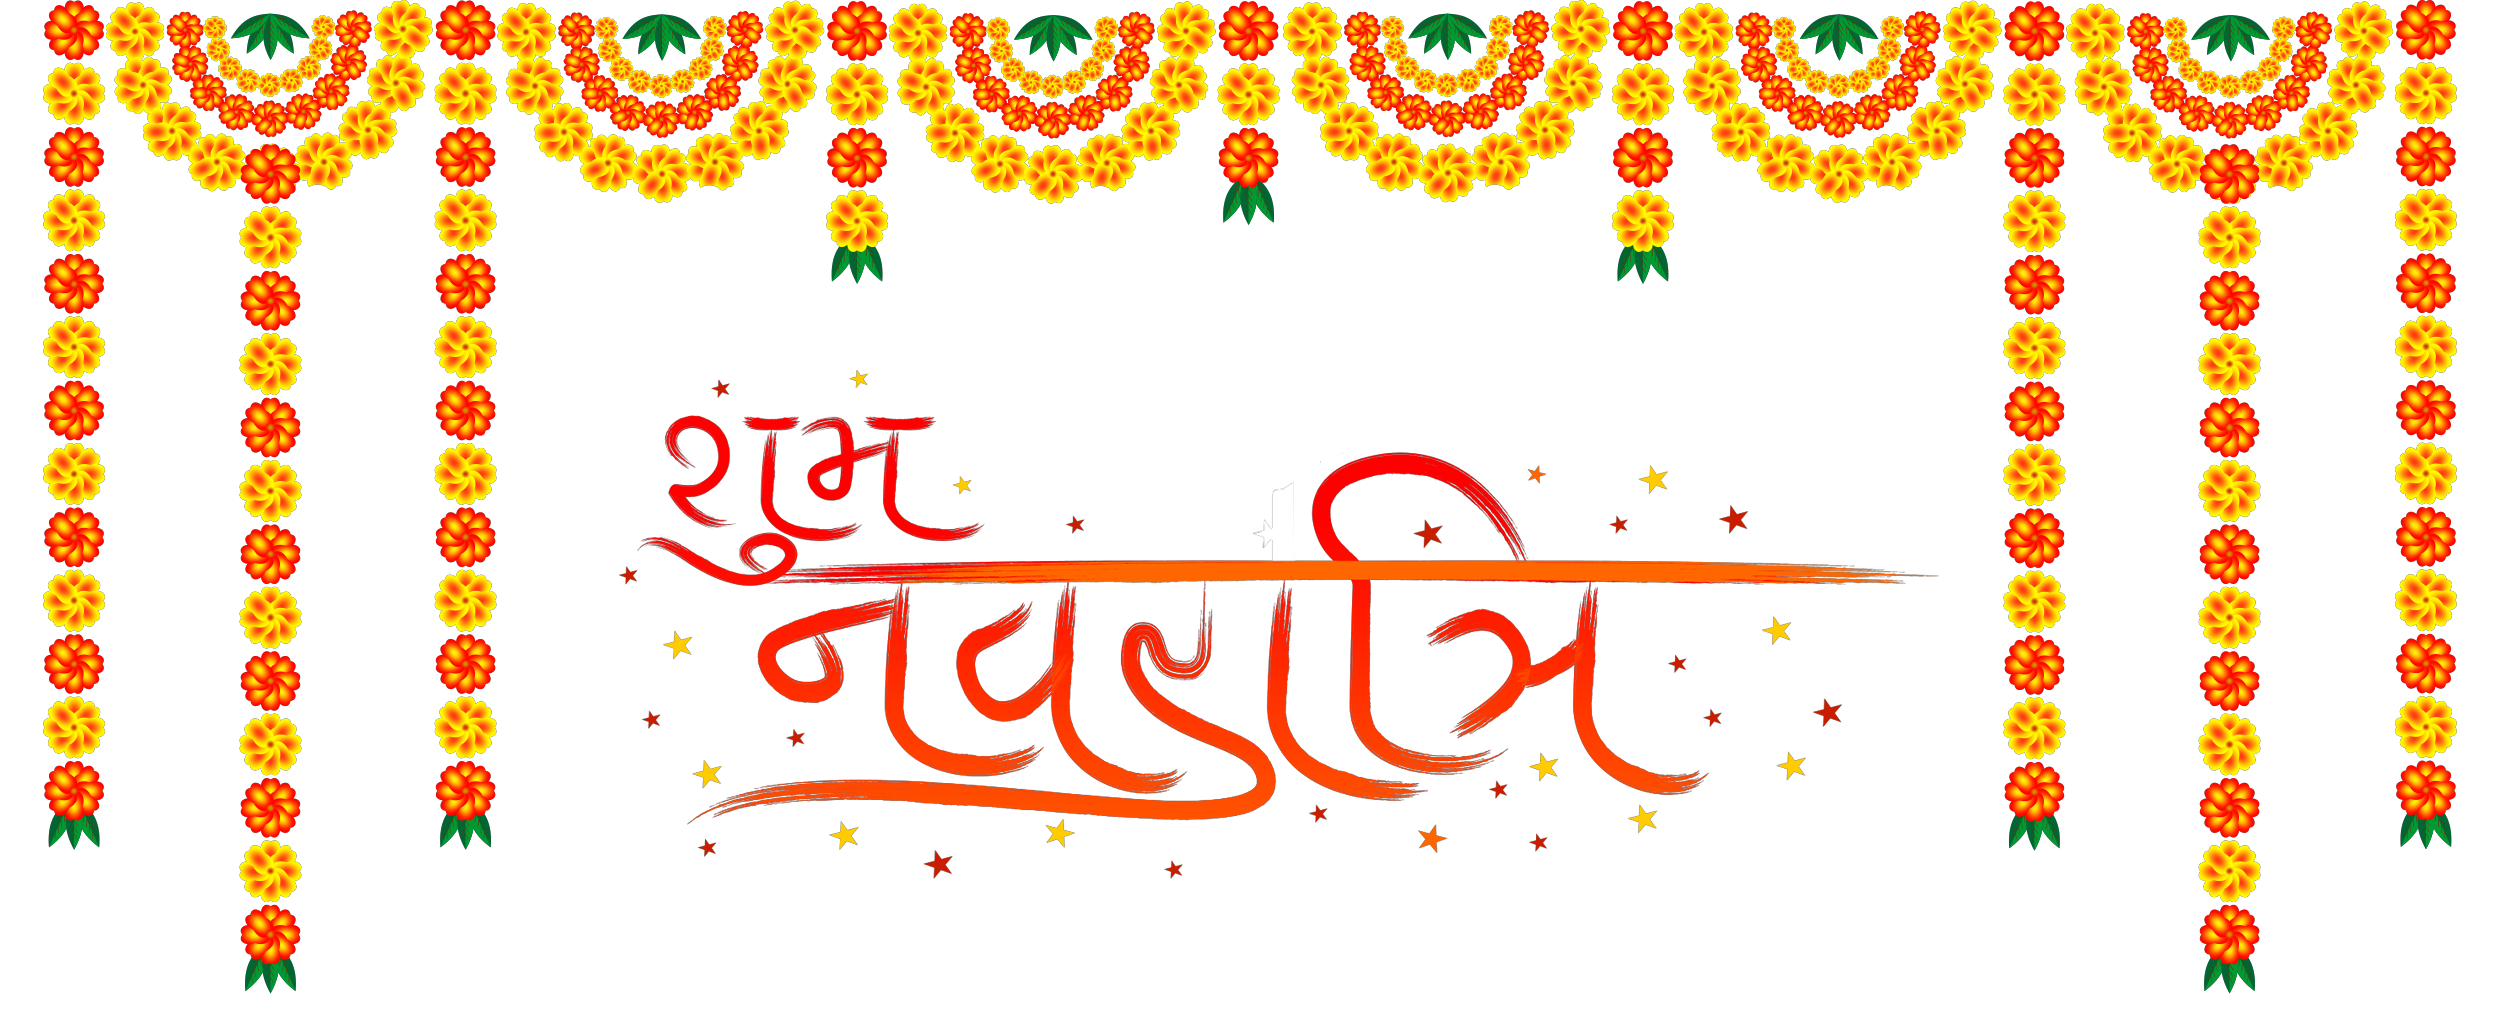 शुभ
नवरात्रि